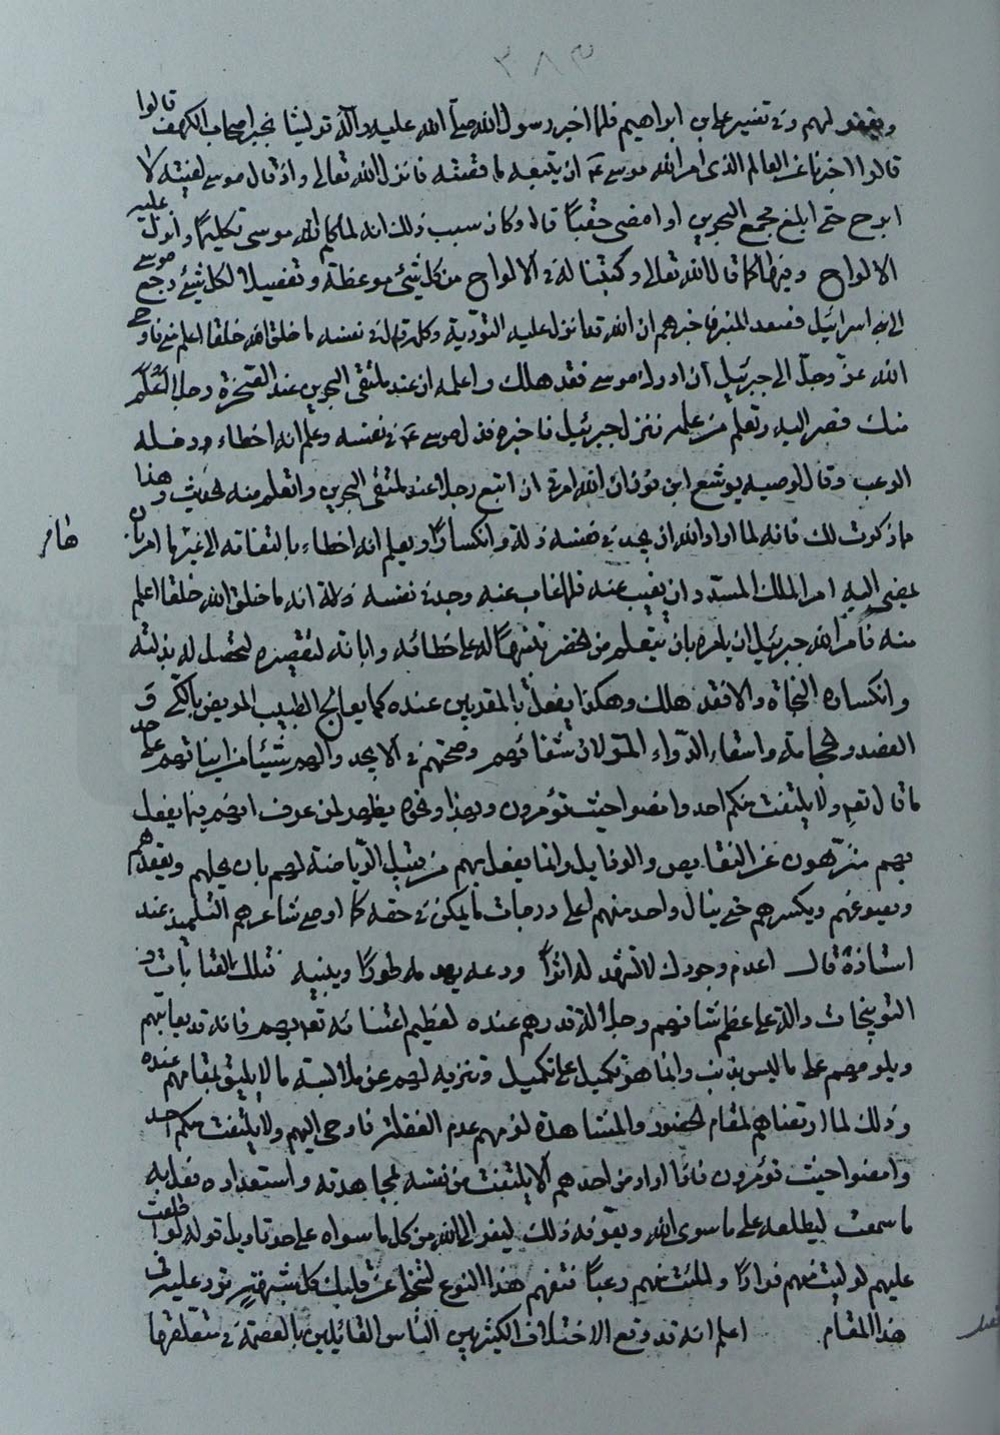 ٣٨٣
ويعفو لهم وفي تفسير علي بن ابراهيم فلما اخبر رسول الله صلى الله عليه وآله قريشا بخبر اصحاب الكهف قالوا
قالوا اخبرنا عن العالم الذى امر الله موسى ع ان يتبعه ما قصته فانزل الله تعالى واذ قال موسى لفتيه لا
ابرح حتى ابلغ مجمع البحرين او امضى حقبًا قال وكان سبب ذلك انه لما كلم الله موسى تكليمًا وانزل عليه
الالواح وفيها كما قال الله تعالى وكتبنا له في الالواح من كل شئ موعظة وتفصيلا لكل شئ رجع موسى
الى بنى اسرائيل فصعد المنبر فاخبرهم ان الله تعا نزل عليه التورية وكلمه قال في نفسه ما خلق الله خلقا اعلم منى فاوحى
الله عز وجل الى جبرئيل ان ادرك موسى فقد هلك واعلمه ان عند ملتقى البحرين عند الصخرة رجل اعلم
منك فصر اليه وتعلم من علمه فنزل جبرئيل فاخبره فذل موسى ع في نفسه وعلم انه اخطاء ودخله
الرعب وقال لوصيه يوشع ابن نون ان الله امرنى ان اتبع رجلا عند ملتقى البحرين واتعلم منه الحديث وهذا
ما ذكرت لك فانه لما اراد الله ان يجد في نفسه ذلة وانكسارًا ويعلم انه اخطاء بالتفاته الى غير ما امر بان
يمضى اليه امر الملك المسدد ان يغيب عنه فلما غاب عنه وجد في نفسه ذلة انه ما خلق الله خلقا اعلم
منه فامر الله جبرئيل ان يامره بان يتعلم من الخضر تنبيهًا له على خطائه وابانة لتقصيره لتحصل له بذلته
وانكساره النجاة والا فقد هلك وهكذا يفعل بالمقربين عنده كما يعالج الطبيب المريض بالكى و
الفصد والحجامة واستقاء الدواء المر لان شفائهم وصحتهم في الا يجدوا لهم شيئا من انياتهم على حد
ما قال تع ولا يلتفت منكم احد وامضوا حيث تؤمرون وبهذا ونحوه يظهر لمن عرف انهم فيما يفعل
بهم منزهون عن النقايص والرذايل وانما يفعل بهم من قبيل الرياضة لهم بان يحلهم ويعقدهم
ويصوغهم ويكسرهم حتى ينال واحد منهم اعلى درجات ما يمكن في حقه كما اوصى شاعرهم التلميذ عند
استاذه قال اعدم وجودك لا تشهد له اثرًا ودعه يهدمه طورًا ويبنيه فتلك العتابات و
التوبيخات دالة على عظم شانهم وجلالة قدرهم عنده لعظيم اعتنائه تع بهم فانه قد يعاتبهم
ويلومهم على ما ليس بذنب وانما هو تكميل على تكميل وتنزيه لهم عن ملابسة ما لا يليق بمقامهم عنده
وذلك لما ارتضاهم لمقام الحضور والمشاهدة لزمهم عدم الغفلة فاوحى اليهم ولا يلتفت منكم احد
وامضوا حيث تؤمرون فاذا اراد من احدهم الا يلتفت من نفسه لمجاهدته واستعداده فعل به
ما سمعت ليطلعه على ما سوى الله ويعرفه ذلك ليفر الى الله من كل ما سواه على حد تاويل قوله لو اطلعت
عليهم لوليت منهم فرارًا ولملئت منهم رعبًا فتفهم هذا النوع لتنحل عن قلبك كل شبهة ترد عليك في
هذا المقام اعلم انه قد وقع الاختلاف الكثير بين الناس القائلين بالعصمة في متعلقها